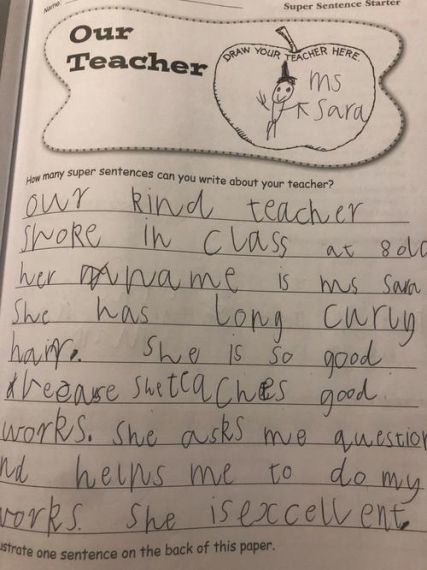 Name:
Super Sentence Starter
Our
Teacher
DRAW YOUR TEACHER HERE.
ms
Sara
How many super sentences can you write about your teacher?
our kind teacher
in class at 8
her name is ms Sara
She has long curly
hair. She is so good
She teaches good
works. She asks me question
nd helps me to do my
works. She is excellent.
ustrate one sentence on the back of this paper.